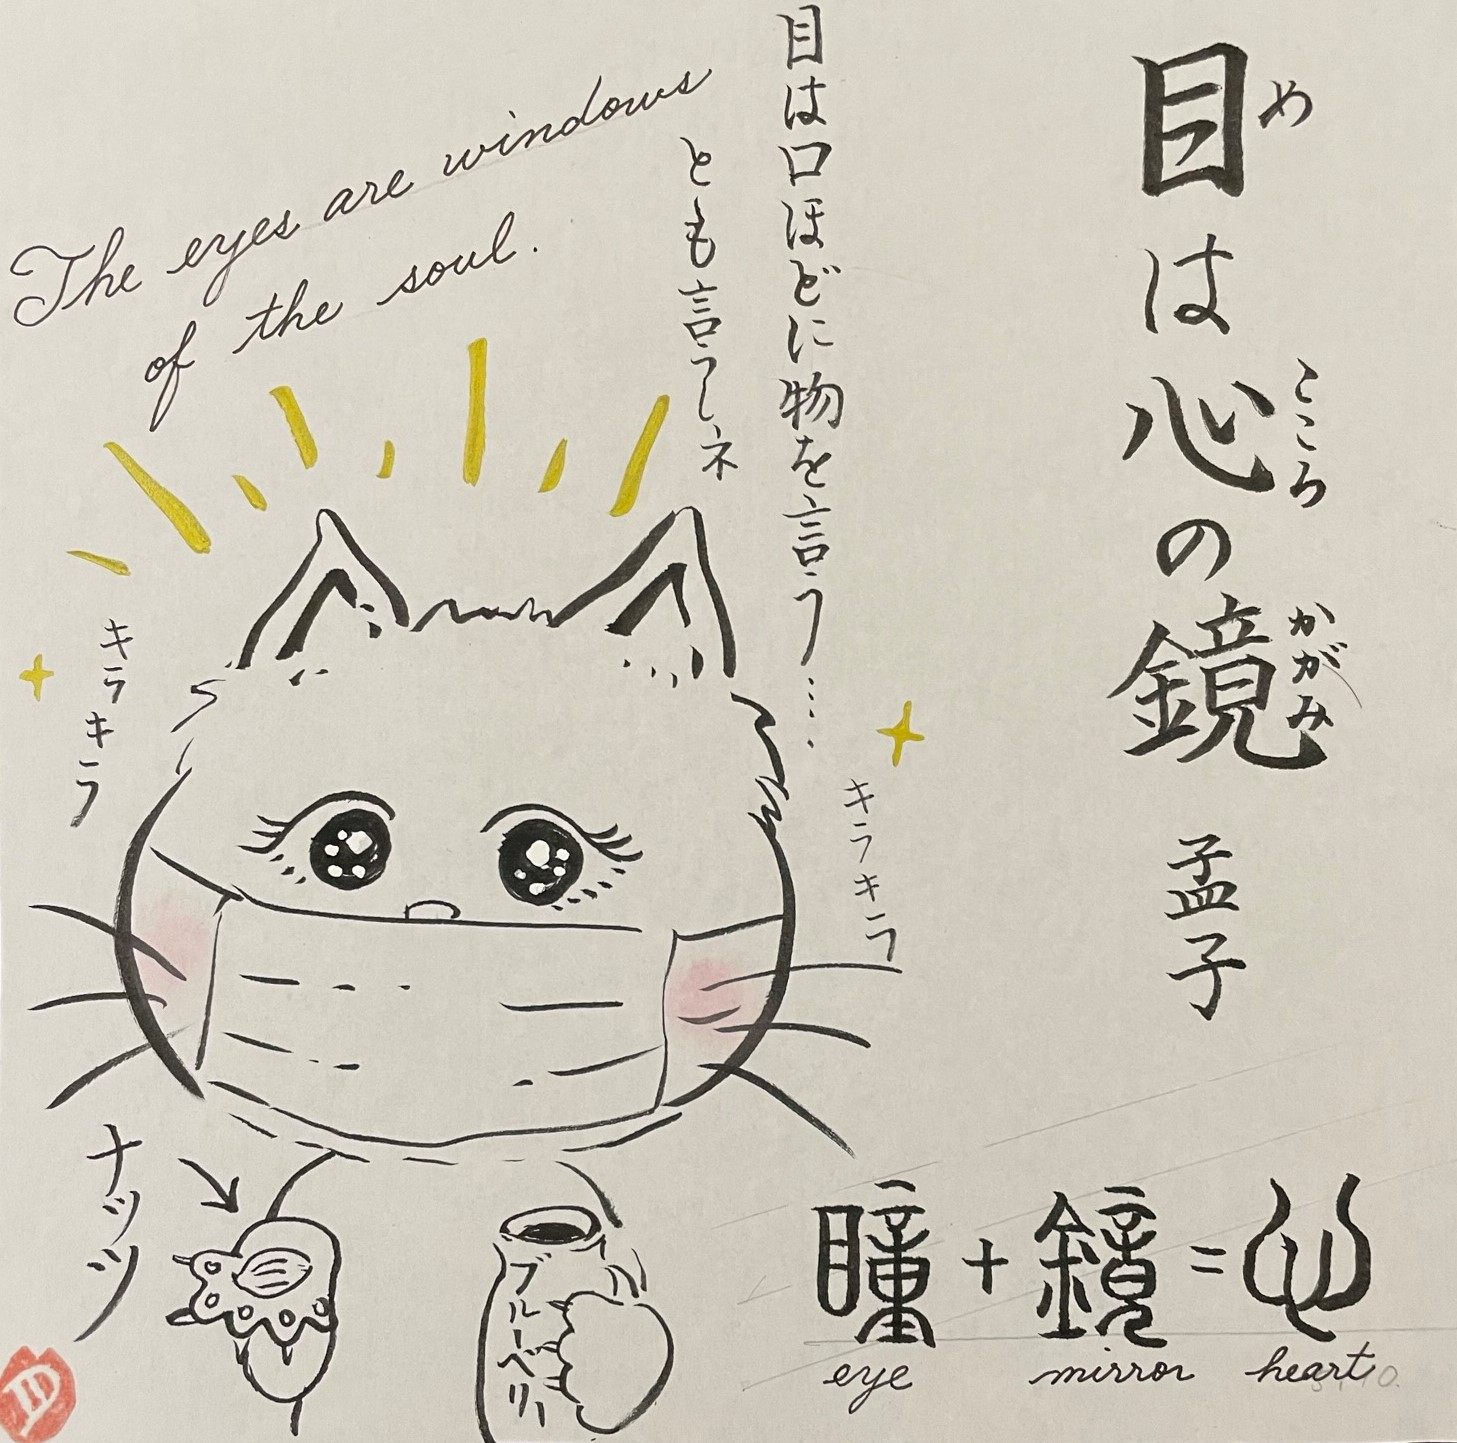 目は心の鏡
め
こころ
かがみ
孟子
目は口ほどに物を言う…
とも言うしネ
The eyes are windows
of the soul.
キラキラ
キラキラ
ナッツ
ブルーベリー
瞳+鏡=心
eye mirror heart